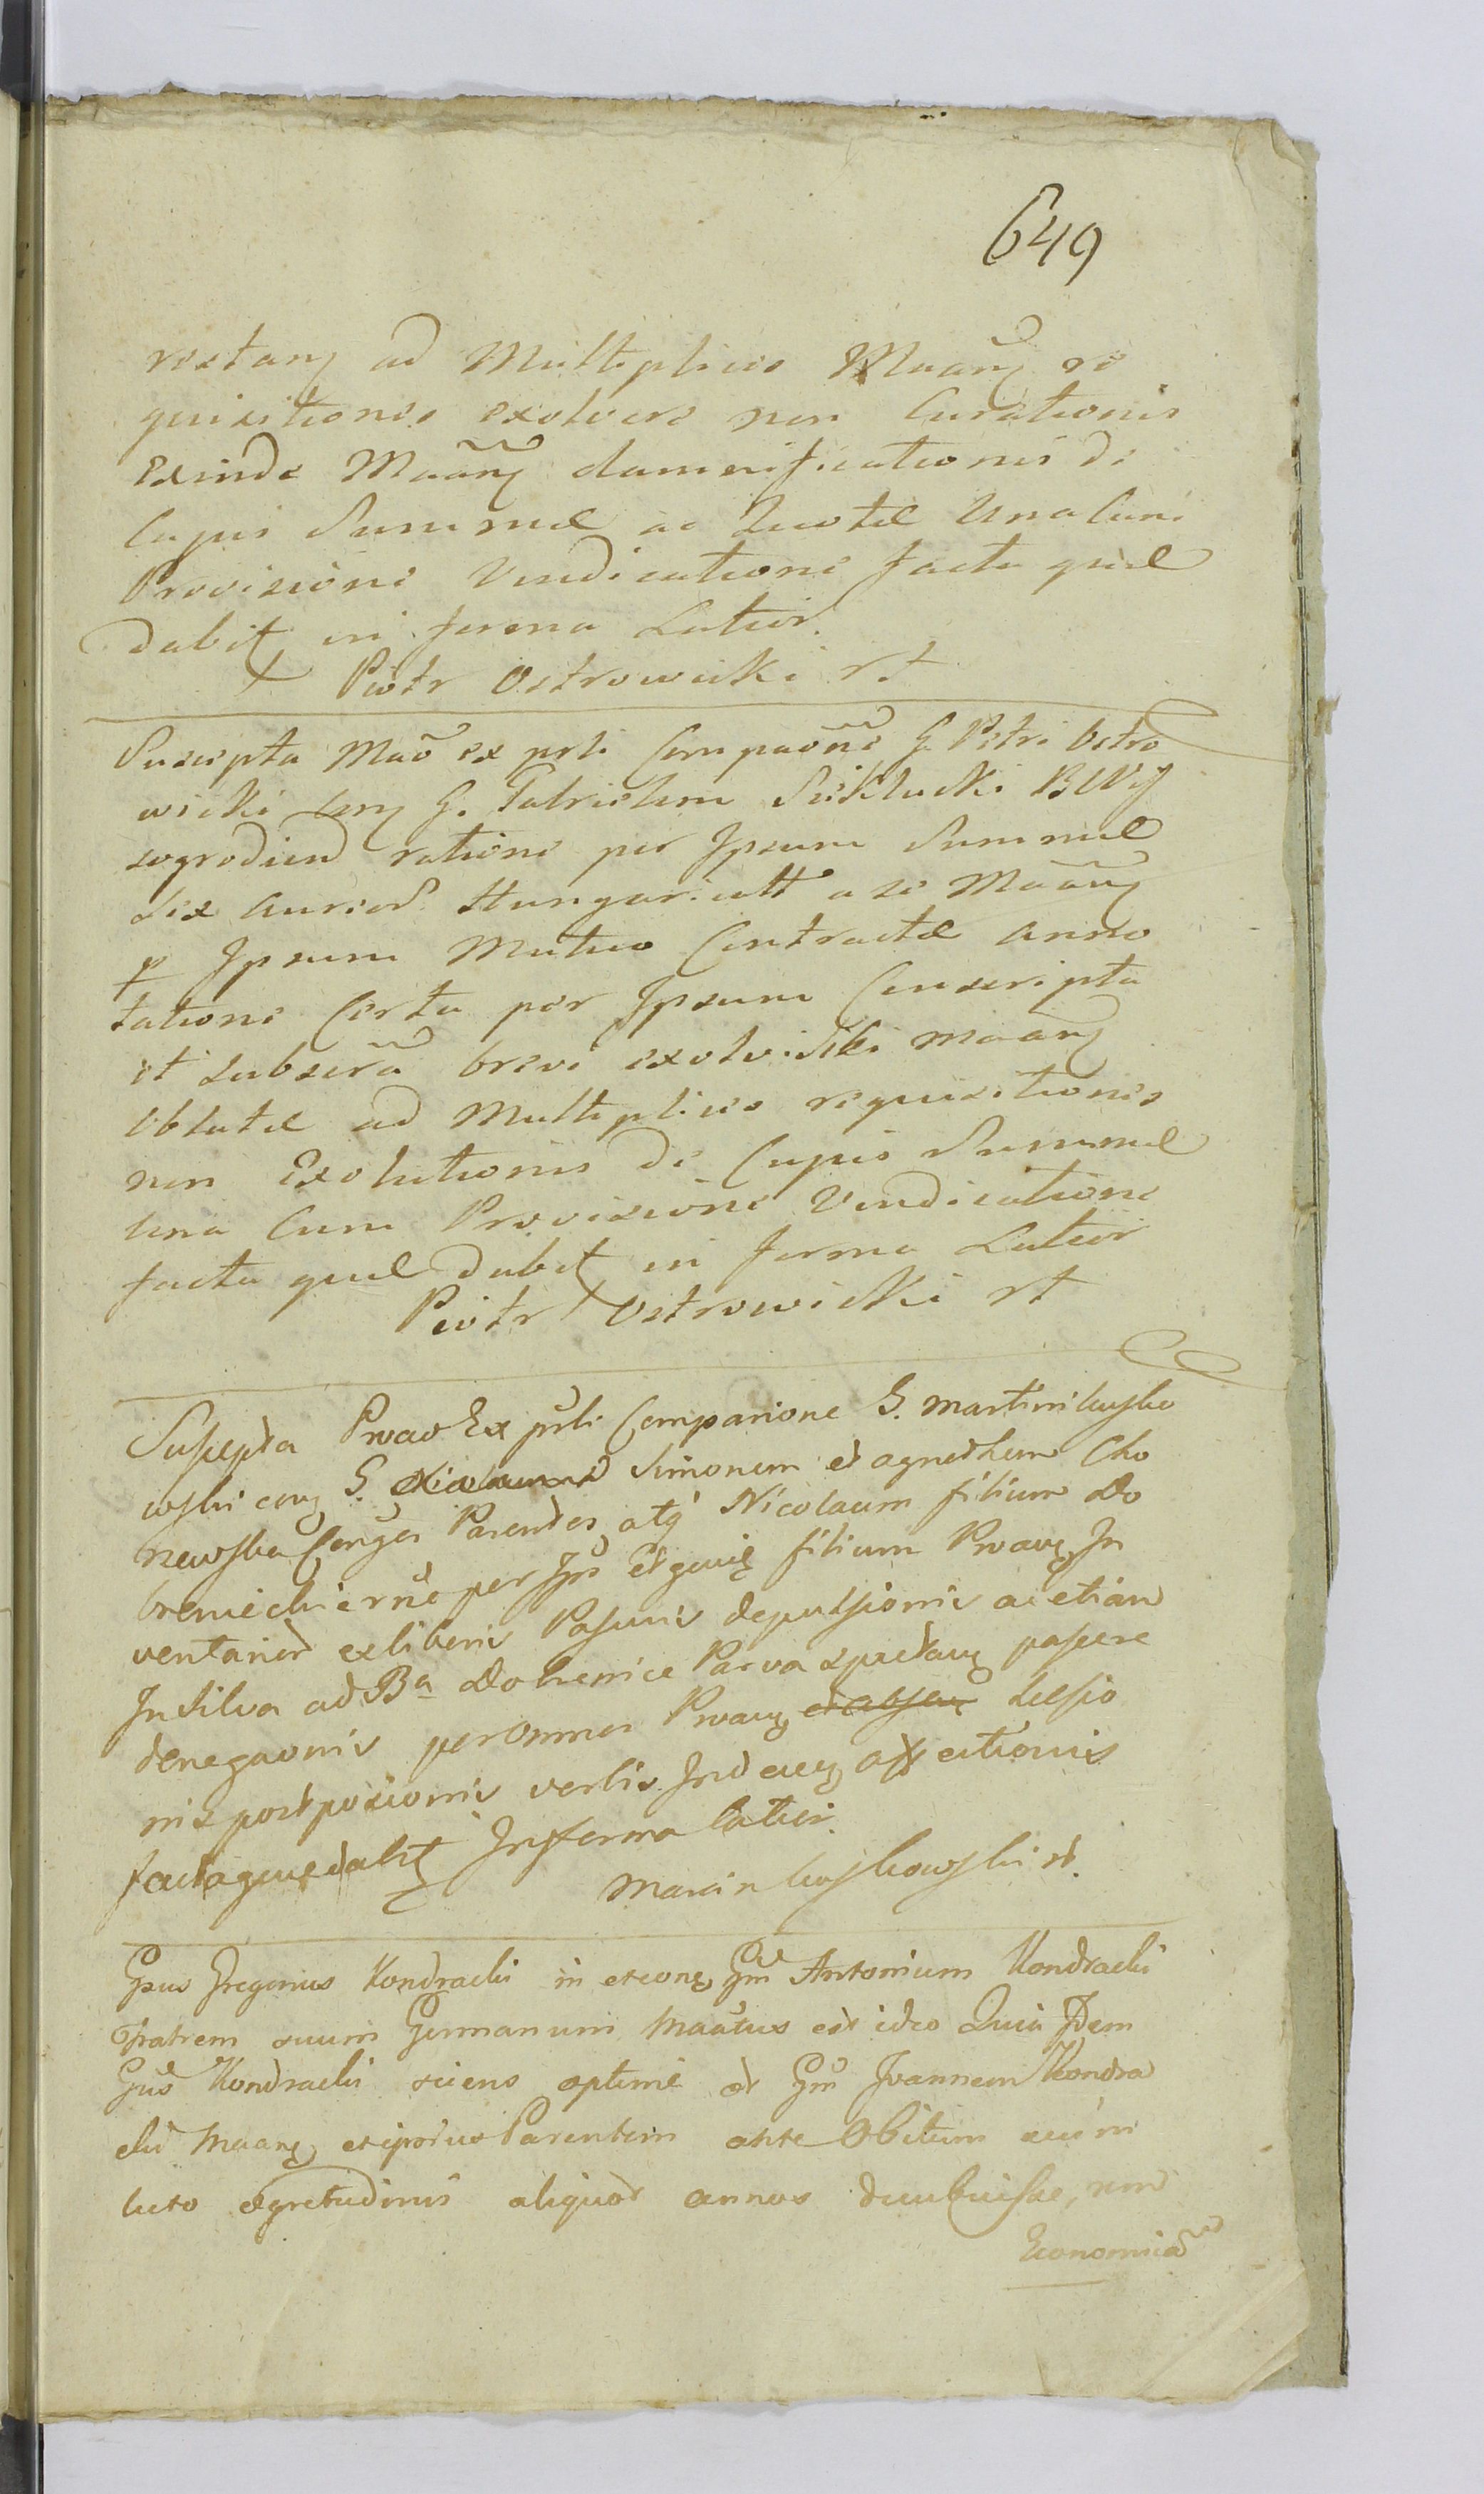 649
restan ad Multiplices Maan re
quisitiones exolvere non Curationis
Exinde Maan damnificationis de
Cujus Summæ ac Quotæ Una Cum
Provisione Vindicatione facta quæ
dabit in forma Latior.
Piotr Ostrowicki rt
Suscepta Mao ex prti Comparone G. Petri Ostro
wicki G. Gabrielem
ratione per Ipsum Summæ
Sex Aureor Hungaricalt a se Maan
p Ipsum Mutuo Contractæ Anno
tatione Certa per Ipsum Conscripta
et Subscra brevi exolvi Sibi Maan
Oblatæ ad Multiplices requisitiones
non Exolutionis de Cujus Summæ
Una Cum Provisione Vindicatione
facta quæ dabit in forma Latior
Piotr Ostrowicki rt
Suscepta Prao Ex prti Comparione G. Martini Lusko
wski G. Simonem et Agnethem Cho
newska Conges Parentes atq Nicolaum filium Do
per filium Praan In
ventarior ex liberis Pascuis depulsionis ac etiam
In Silva ad Ba Dolenice Parva pascere
denegaonis per Omnes Praan Læsio
nis postposicionis verbis affectionis
facta quæ dabit In forma latior.
Marcin Luskowski rt.
Gsus Gregorius Kondracki in Gm Antonium Kondracki
Fratrem suum Germanum Maatus est ideo Quia Idem
Gus Kondracki sciens optime et Gm Joannem Kondra
cki Maan Parentem ante Obitum suum
lecto Ægretudinis aliquot annos decubuisse,
Economia